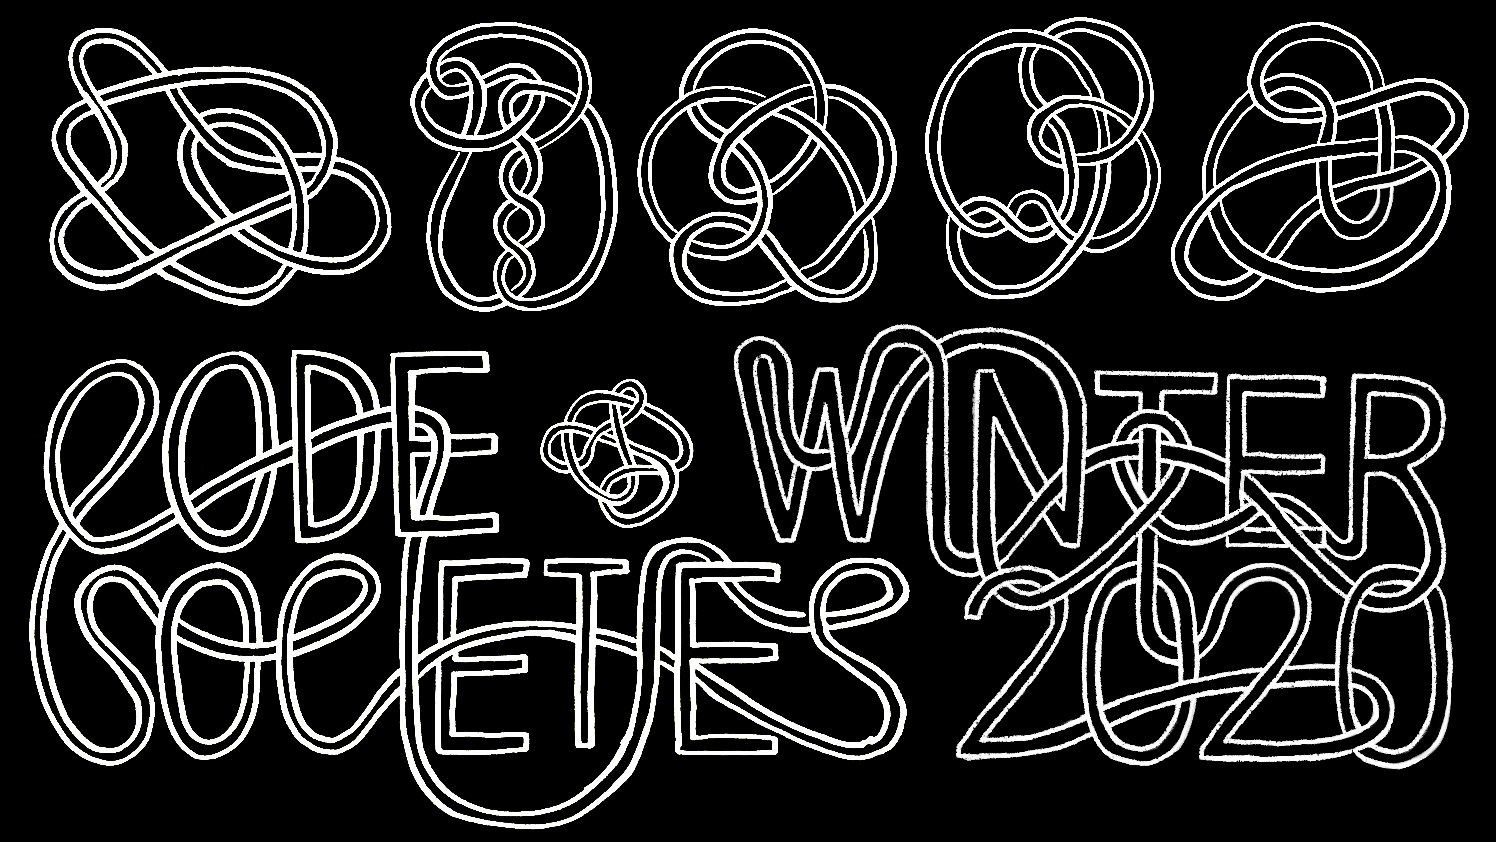 CODE
SOCIETIES
WINTER
2020